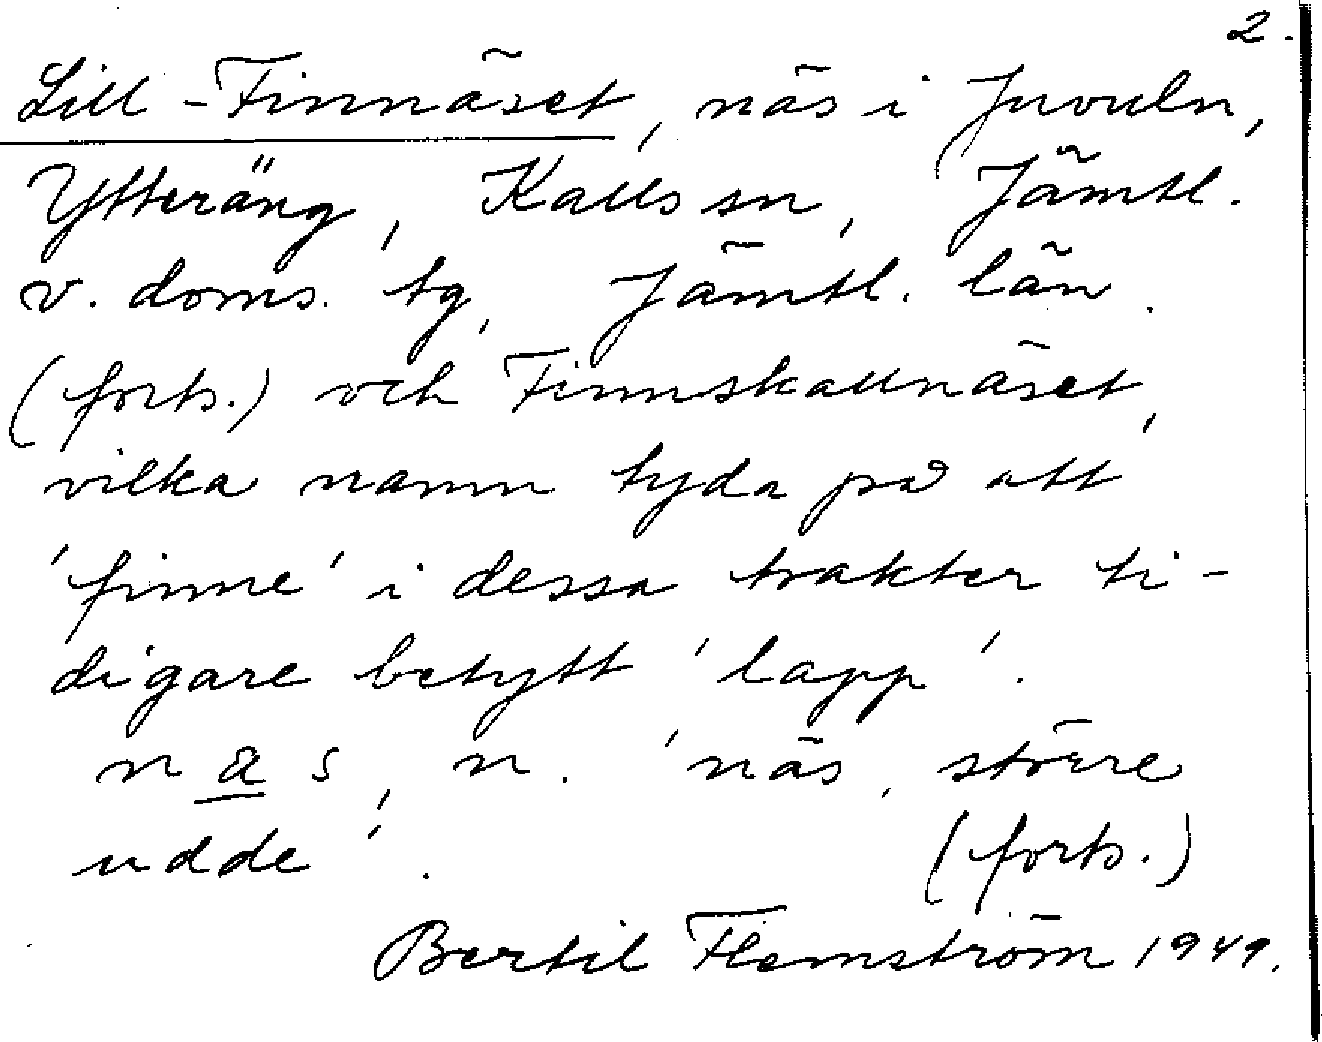 2.
Lill-Finnäset, näs i Juvuln,
Ytteräng, Kalls sn, Jämtl.
v. doms. tg, Jämtl. län.
(forts.) och Finnskallnäset,
vilka namn tyda på att
'finne' i dessa trakter ti-
digare betytt 'lapp'.
n a s, n. 'näs, större
udde'. (forts.)
Bertil Flemström 1949.